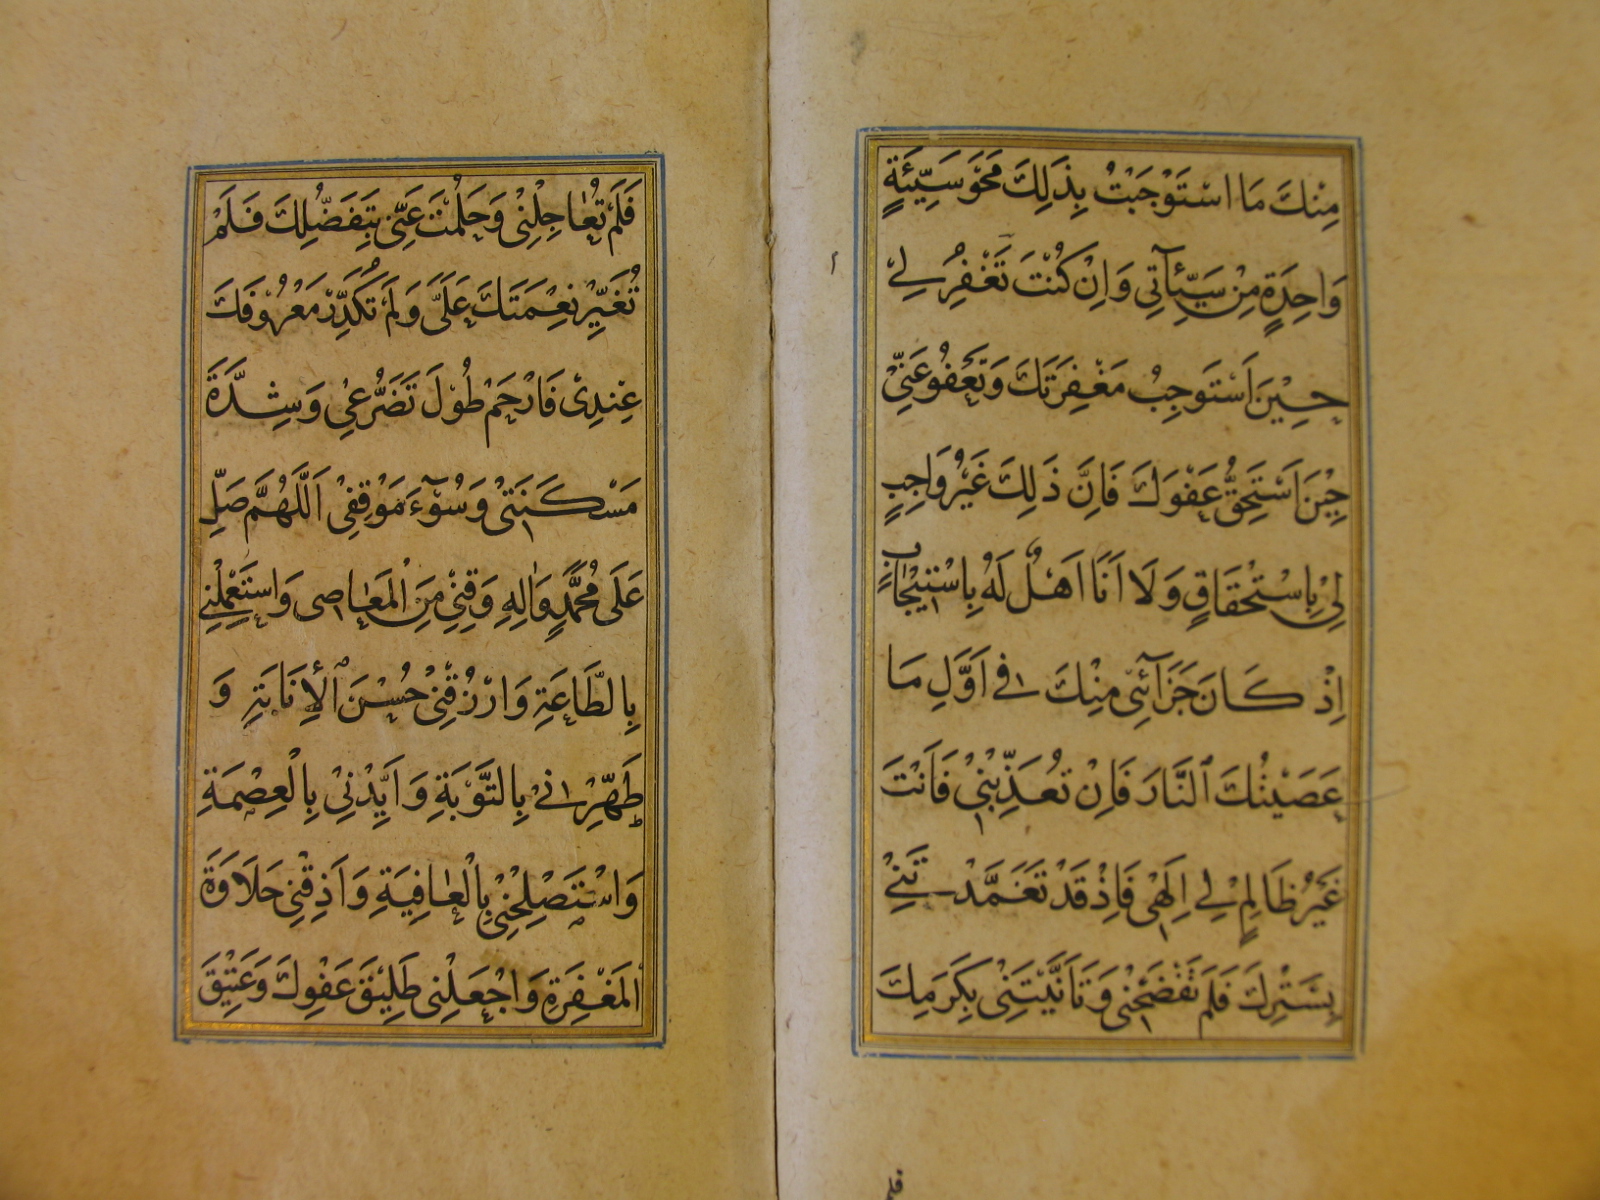 مِنْكَ مَا اسْتَوْجَبْتُ بِذَلِكَ مَحْوَ سَيِّئَةٍ
وَاحِدَةٍ مِنْ سَيِّئَآتِي وَاِنْ كُنْتَ تَغْفِرُ لِي
حِيْنَ اَسْتَوجِبُ مَغْفِرَتَكَ وَتَعْفُو عَنِّي
حِيْنَ اَسْتَحِقُّ عَفْوَكَ فَاِنَّ ذَلِكَ غَيْرُ وَاجِبٍ
لِيْ بِاسْتِحْقَاقٍ وَلَا اَنَا اَهْلٌ لَهُ بِاسْتِيْجَابٍ
اِذْ كَانَ جَزَآئِي مِنْكَ فِي اَوَّلِ مَا
عَصَيْتُكَ النَّارَ فَاِنْ تُعَذِّبْنِيْ فَاَنْتَ
غَيْرُ ظَالِمٍ لِي اِلَهِي فَاِذْ قَدْ تَغَمَّدْتَنِيْ
بِسَتْرِكَ فَلَمْ تَفْضَحْنِي وَتَاَنَّيْتَنِيْ بِكَرَمِكَ
فلم
فَلَمْ تُعَاجِلْنِيْ وَحَلُمْتَ عَنِّيْ بِتَفَضُّلِكَ فَلَمْ
تُغَيِّرْ نِعْمَتَكَ عَلَيَّ وَلَمْ تُكَدِّرْ مَعْرُوفَكَ
عِنْدِيْ فَارْحَمْ طُوْلَ تَضَرُّعِيْ وَشِدَّةَ
مَسْكَنَتِيْ وَسُوْءَ مَوْقِفِيْ اَللَّهُمَّ صَلِّ
عَلَى مُحَمَّدٍ وَاٰلِهِ وَقِنِيْ مِنَ الْمَعَاصِي وَاسْتَعْمِلْنِي
بِالطَّاعَةِ وَارْزُقْنِيْ حُسْنَ الْاِنَابَةِ وَ
طَهِّرْنِيْ بِالتَّوْبَةِ وَاَيِّدْنِيْ بِالْعِصْمَةِ
وَاسْتَصْلِحْنِيْ بِالْعَافِيَةِ وَاَذِقْنِي حَلَاوَةَ
الْمَغْفِرَةِ وَاجْعَلْنِي طَلِيْقَ عَفْوِكَ وَعَتِيْقَ